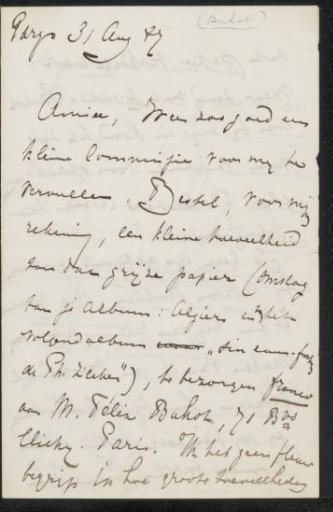 (Buhot)
Parijs 31 Aug 87
Amice, Wees zoo goed een
kleine Commissie voor my te
vervullen. Bestel, voor mijn
rekening, een kleine hoeveelheid
van dat grijze papier (omslag
van je Album:
album
de Ph. Zilcken"), te bezorgen franco
aan M. Félix Buhot, 71 Bd
Clichy. Paris. Ik heb geen flauw
begrip in hoe groote hoeveelheden